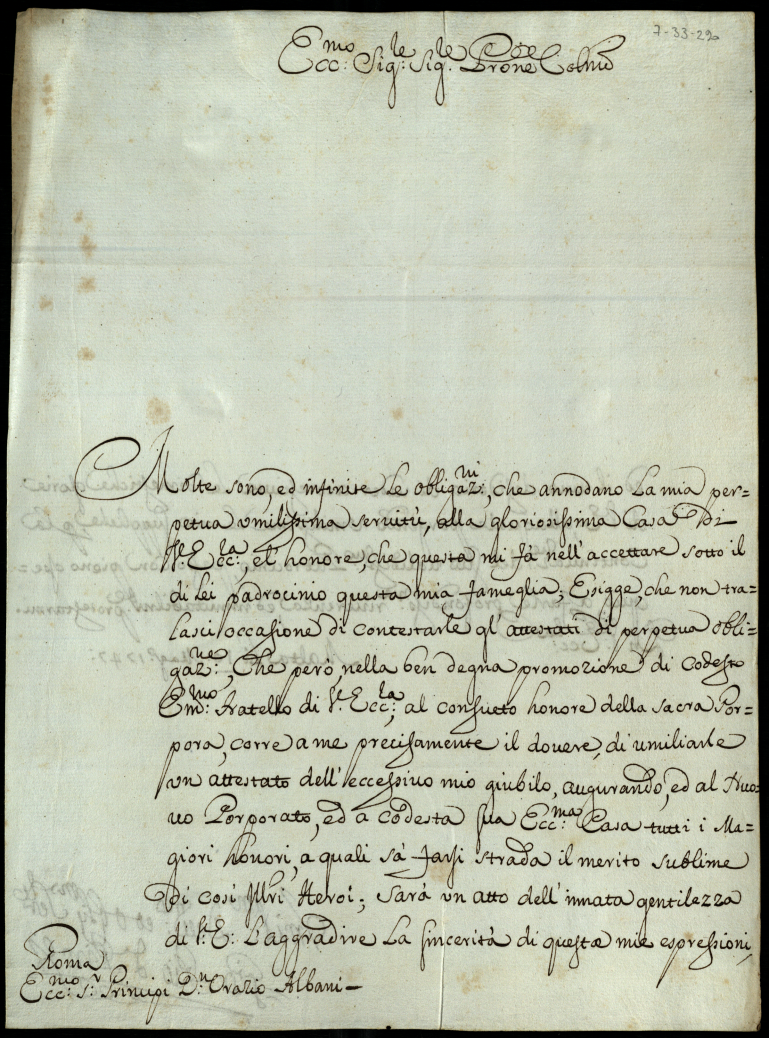 7-33-29
Ecc:mo Sig:le Sig:le Prone Colmo
Molte sono, ed infinite le obligaz:ni, che annodano la mia per=
petua umilissima servitù, alla gloriosissima Casa di
V. Ecc:la, el' honore, che questa mi fà nell'accettare sotto il
di lei padrocinio questa mia fameglia, Esigge, che non tra=
lasci occasione di contestarle gl' attestati di perpetua obli=
gaz:ne, Che però, nella ben degna promozione di codesto
Em:mo fratello di V. Ecc:la, al consueto honore della sacra Por=
pora, corre a me precisamente il dovere, di umiliarle
un attestato dell'eccessivo mio giubilo, augurando, ed al Nuo=
vo Porporato, ed a codesta sua Ecc:ma Casa tutti i Ma=
giori honori, a quali sà farsi strada il merito sublime
di cosi Illri Heroi; Sarà un atto dell'innata gentilezza
di V. E: L'aggradire la sincerità di queste mie espressioni,
Roma
Ecc:mo S:r Principi D:n Orazio Albani